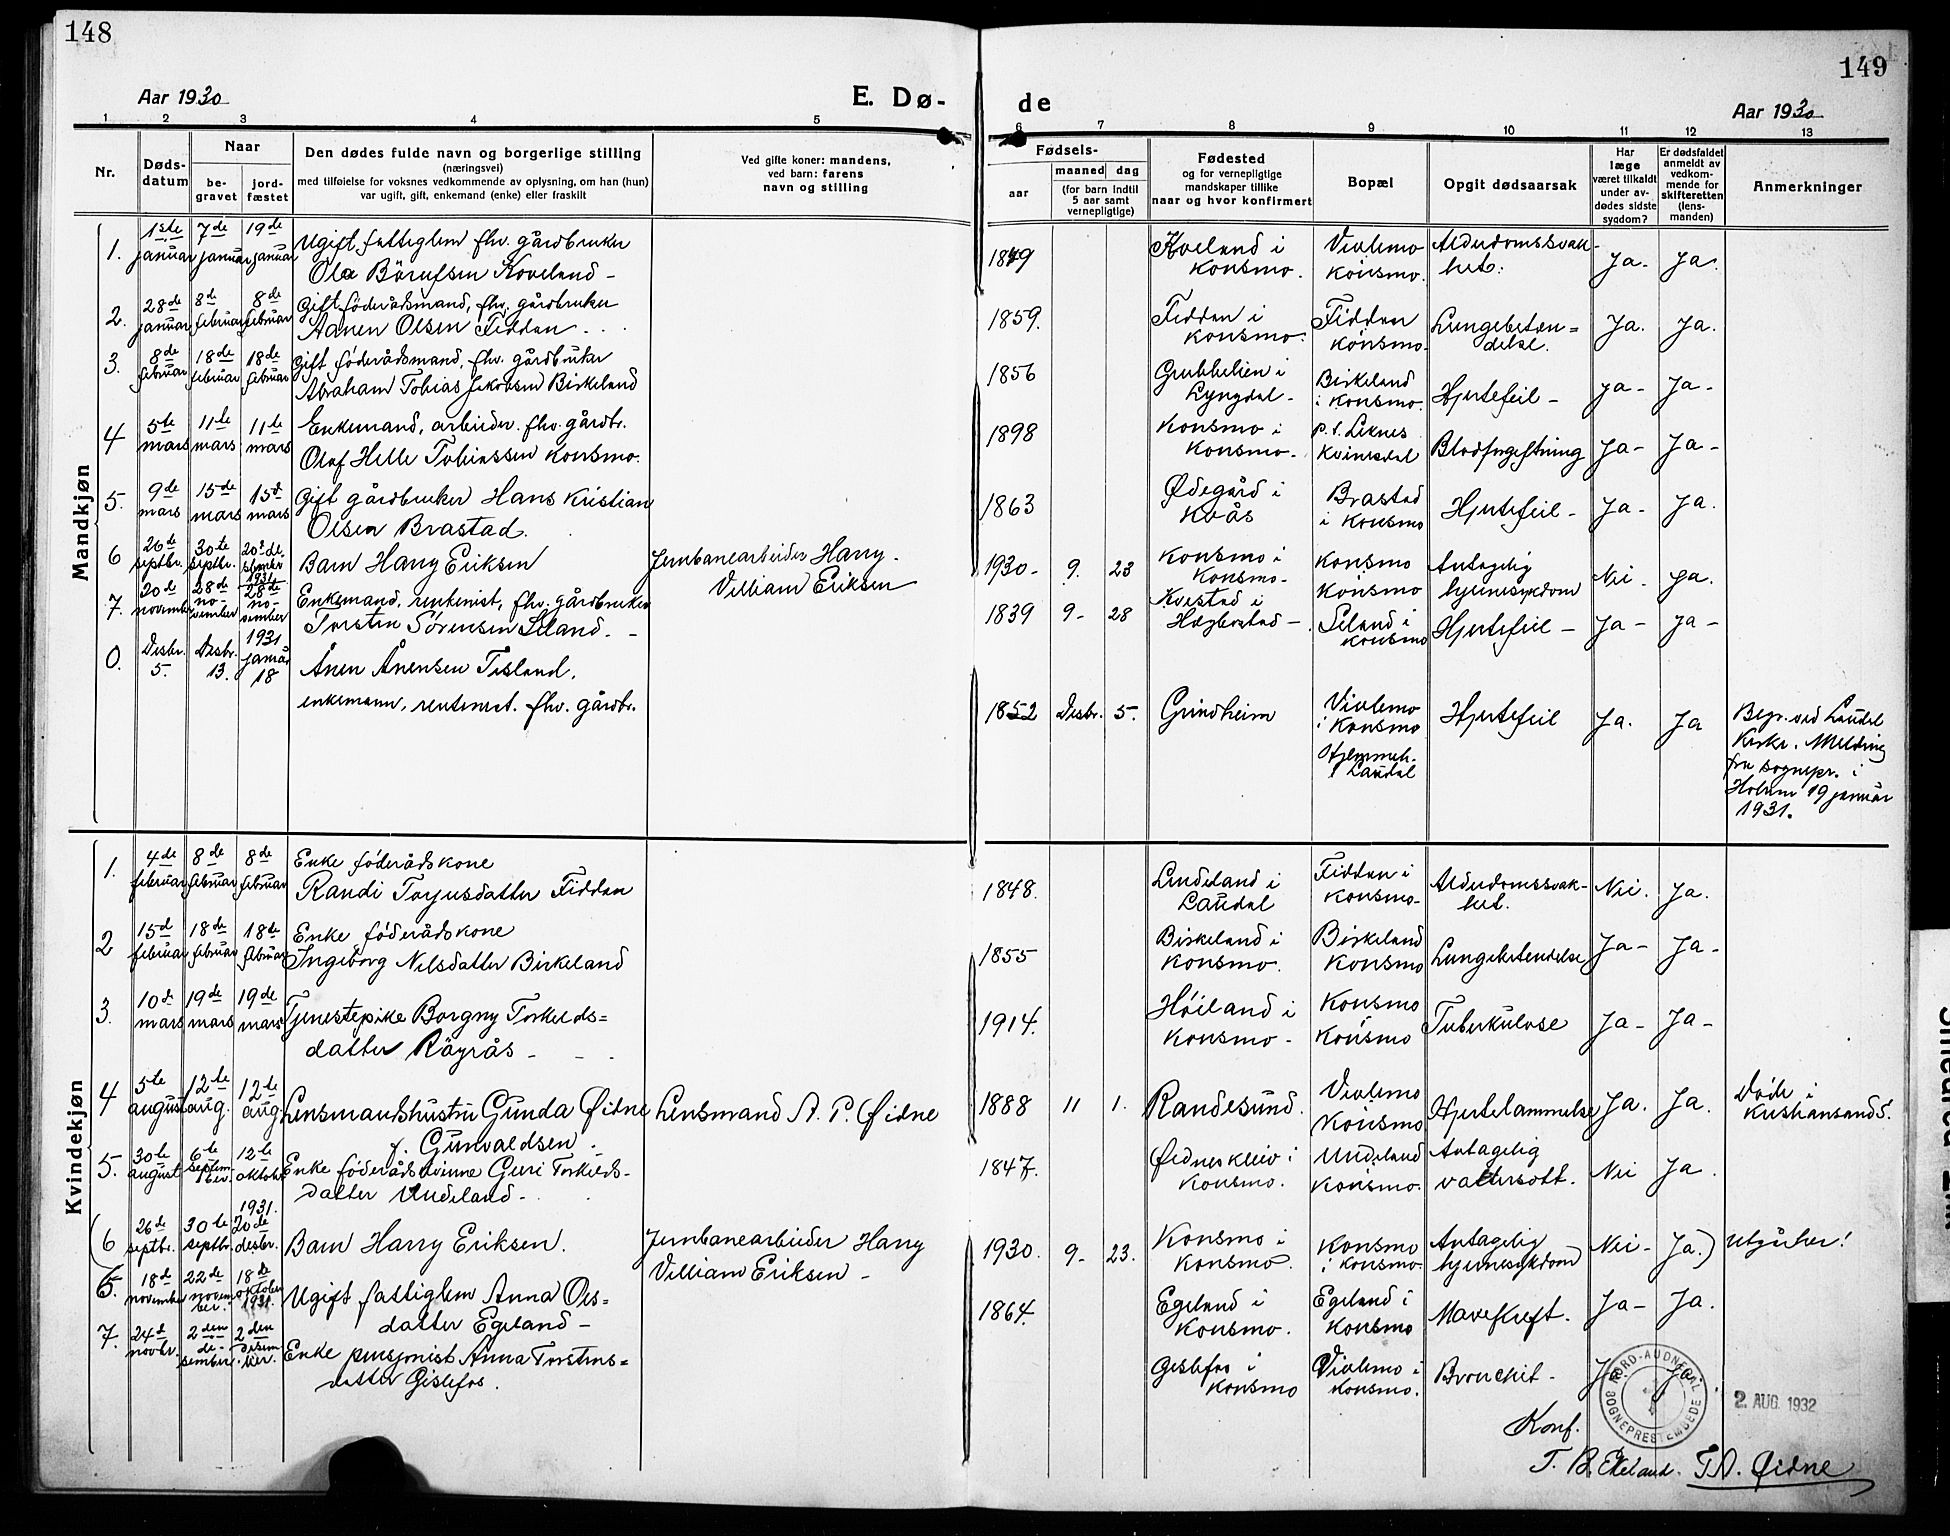 148
Aar 1930
E. Dø-
1 2 3 4 5
Nr.
Døds-
datum
Naar
be-
gravet
jord-
fæstet
Den dødes fulde navn og borgerlige stilling
(næringsvei)
med tilføielse for voksnes vedkommende av oplysning, om han (hun)
var ugift, gift, enkemand (enke) eller fraskilt
Ved gifte koner: mandens,
ved barn: farens
navn og stilling
Mandkjøn
1. 1ste januar 7de januar 19de januar Ugift fattiglem fhv. gårdbruker
Ola Börufsen Koveland -
2. 28de januar 8de februar 8de februar Gift föderådsmand, fhv. gårdbruker
Aanen Olsen Fiddan -
3. 8de februar 18de februar 18de februar Gift föderådsmand, fhv. gårdbruker
Abraham Tobias Jakobsen Birkeland
4 5te mars 11te mars 11te mars Enkemand, arbeider. fhv. gårdbr.
Olaf Helle Tobiassen Konsmo.
5. 9de mars 15de mars 15d mars Gift gårdbruker Hans Kristian
Olsen Brastad.
6 26de septbr. 30te septbr. 20de desember 1931 Barn Harry Eriksen Jernbanearbeider Harry
Villiam Eriksen
7. 20de november 28de november 28de november Enkemand, rentenist, fhv. gårdbruker
Torsten Sørensen Seland. -
0. Desbr. 5. Desbr. 13. 1931 januar 18 Ånen Ånensen Tisland,
enkemann, rentenist. fhv. gårdbr.
Kvindekjøn
1. 4de februar 8de februar 8de februar Enke föderådskone
Randi Torjusdatter Fiddan
2 15d februar 18de februar 18de februar Enke föderådskone
Ingeborg Nilsdatter Birkeland
3. 10d mars 19de mars 19de mars Tjenestepike Borgny Torkelds=
datter Röyrås -
4 5te august 12te aug. 12te aug. Lensmandshustru Gunda Øidne Lensmand A. P. Øidne
f. Gunvaldsen.
5. 30te august 6te september 12te oktober Enke föderådskvinne Guri Torkilds-
datter Undeland -
(6 26de septbr. 30te septbr. 1931. 20de desbr. Barn Harry Eriksen. Jernbanearbeider Harry
Villiam Eriksen -
6. 18de november 22de november. 18de oktober 1931. Ugift fattiglem Anna Ols=
datter Egeland -
7. 24d novbr. 2den desember. 2den desember. Enke pensjonist Anna Torstens=
datter Gislefos.
149
de
Aar 1930
6 7 8 9 10 11 12 13
Fødsels-
aar
maaned dag
(for barn indtil
5 aar samt
vernepligtige)
Fødested
og for vernepligtige
mandskaper tillike
naar og hvor konfirmert
Bopæl
Opgit dødsaarsak
Har
læge
været tilkaldt
under av-
dødes sidste
sygdom?
Er dødsfaldet
anmeldt av
vedkom-
mende for
skifteretten
(lens-
manden)
Anmerkninger
1849 Kveland i Konsmo. Vivlemo Konsmo. Alderdomssvakhet. Ja. Ja.
1859. Fiddan i Konsmo. Fiddan Konsmo. Lungebetæn=delse. Ja. Ja.
1856 Grubbelien i Lyngdal - Birkeland i Konsmo. Hjertefeil - Ja - Ja -
1898 Konsmo i Konsmo - p.t. Liknes Kvinesdal Blodforgiftning Ja - Ja -
1863 Ødegård i Kvås Brastad i Konsmo Hjertefeil - Ja - Ja.
1930 - 9. 23 Konsmo i Konsmo - Konsmo Konsmo Antagelig hjernesykdom Nei - Ja.
1839 9 - 28 Kvestad i Hægbostad - Seland i Konsmo Hjertefeil - Ja - Ja -
1852 Desbr. 5. Grindheim Vivlemo i Konsmo Hjemmeh. Laudal Hjertefeil Ja. Ja Begr. ved Laudal
Kirke. Melding
fra sognepr. i
Holum 19 januar
1931.
1848. Lindeland i Laudal Fiddan i Konsmo - Alderdomssvak-het. Nei. Ja.
1855 Birkeland i Konsmo. Birkeland Konsmo Lungebetendelse Ja - Ja -
1914. Høiland i Konsmo - Konsmo Konsmo Tuberkulose Ja - Ja -
1888 11 1. Randesund. Vivlemo Konsmo Hjertelammelse Ja. Ja. Døde i
Kristiansand S.
1847. Øidneskleiv i Konsmo. Undeland Konsmo. Antagelig vattersott. Nei Ja.
1930. 9 - 23. Konsmo i Konsmo. Konsmo i Konsmo Antagelig hjernesykdom Nei - Ja.) Utgår her!
1864. Egeland i Konsmo. Egeland i Konsmo Mavekreft. Ja - Ja.
Gislefos i Konsmo Vivlemo i Konsmo. Bronchit - Ja Ja
NORD-AUDNEDAL SOGNEPRESTEMBEDE
2. AUG. 1932
Konf.
T. B. Ekeland. T. A. Øidne